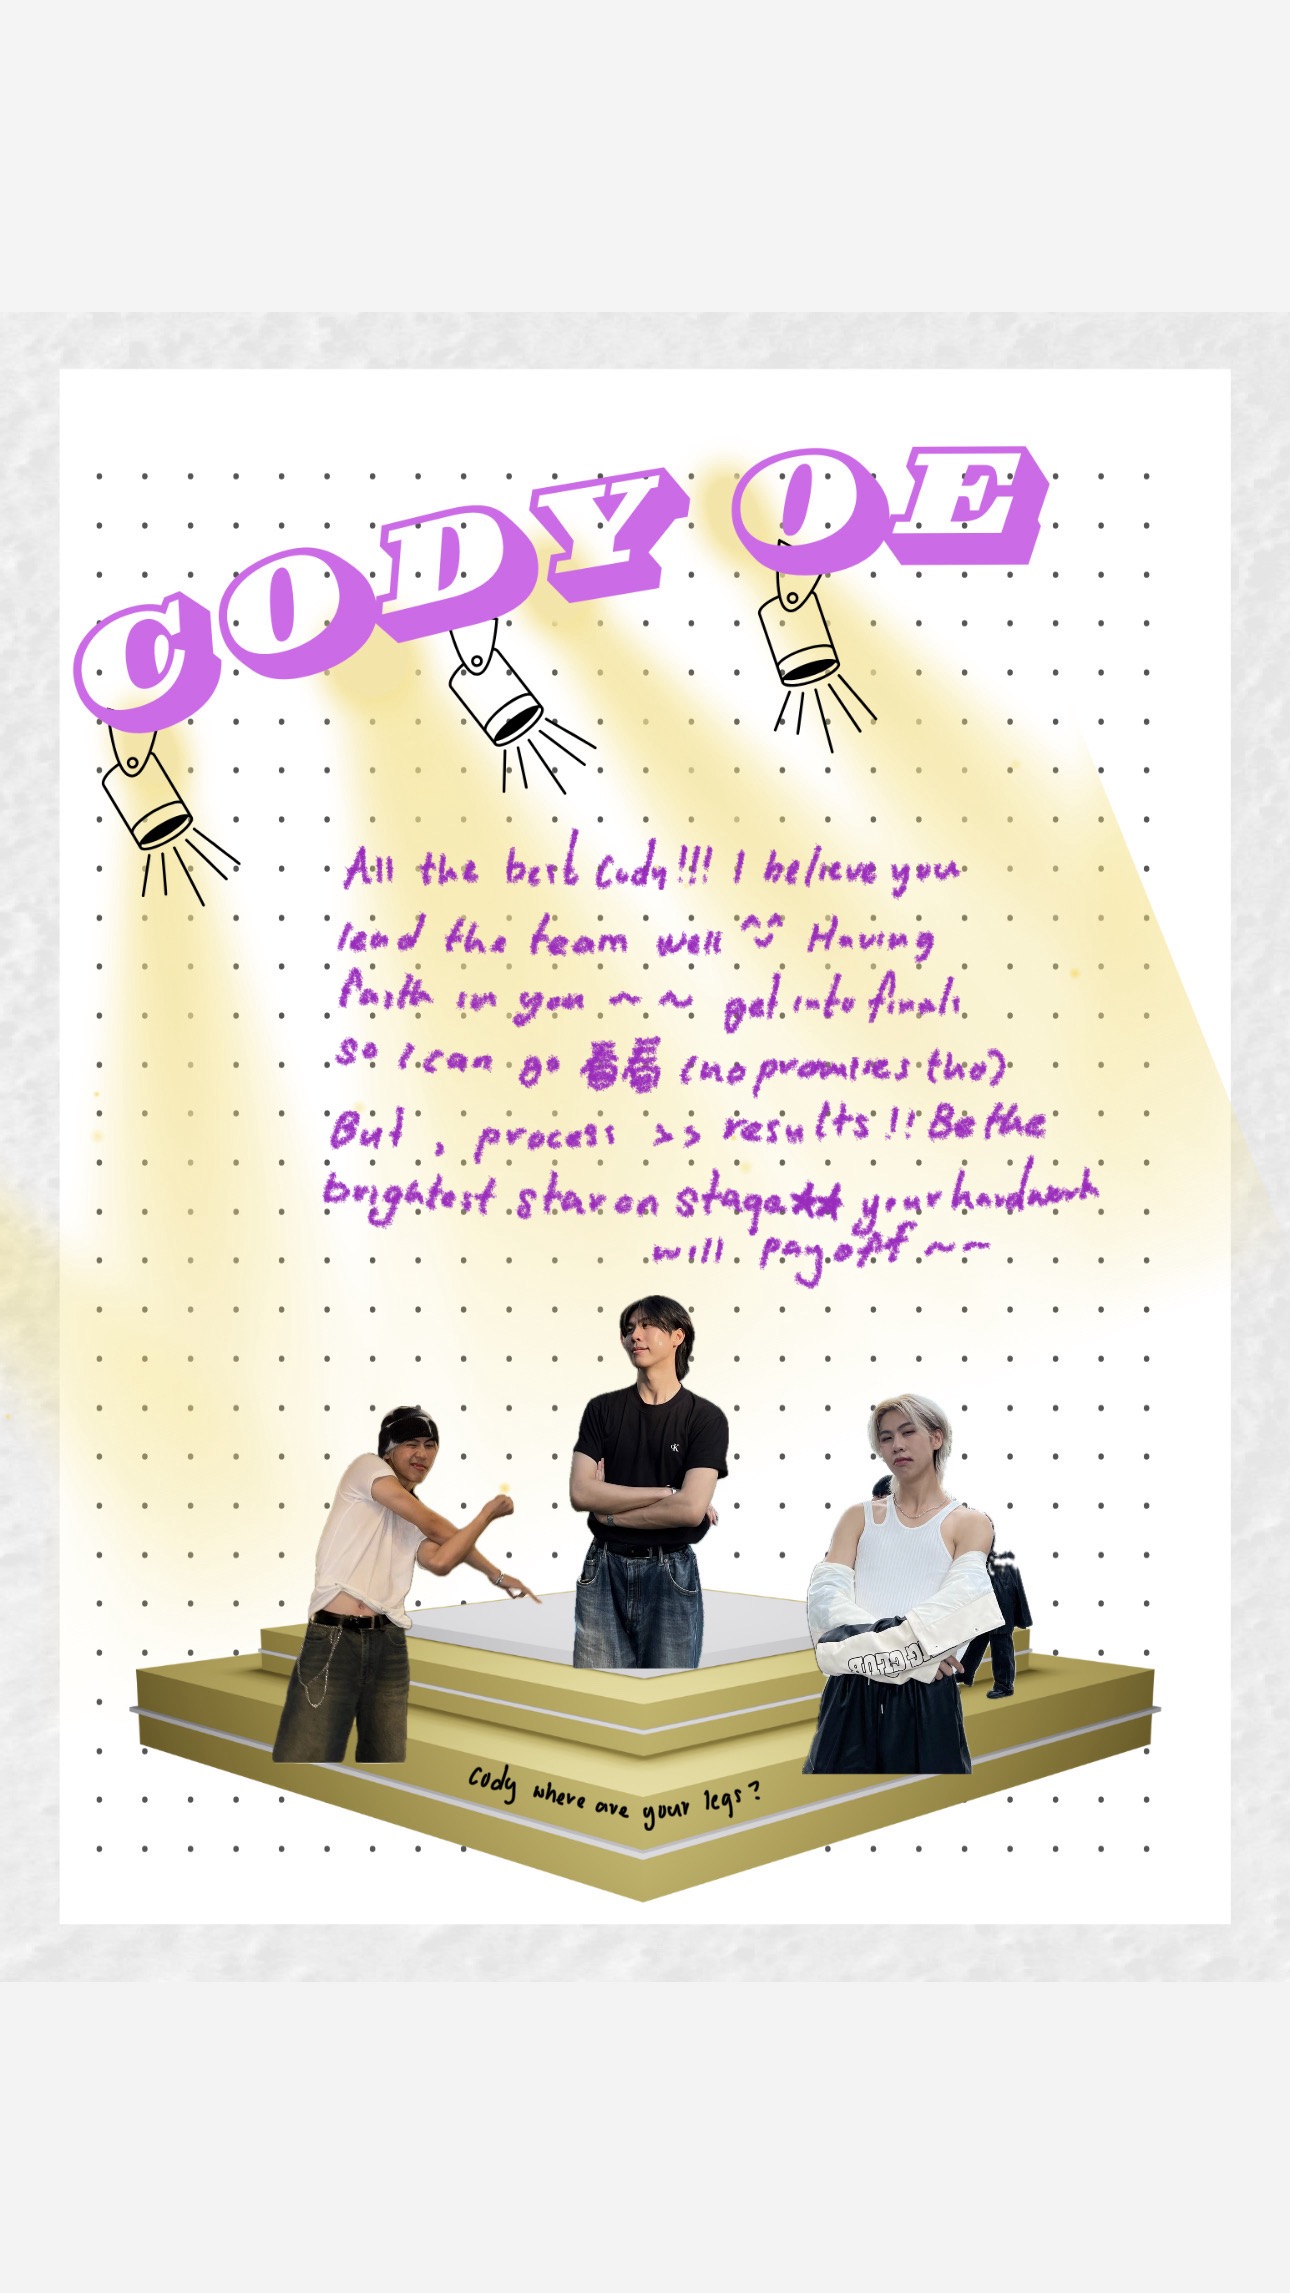 CODY OE
All the best Cody!!! I believe you
lead the team well ^^ Having
faith in you ~ ~ get into finals
so i can go 看看 (no promises tho)
But, process >> results!! Be the
brightest star on stage★★ your hardwork
will payoff ~~
cody where are your legs?